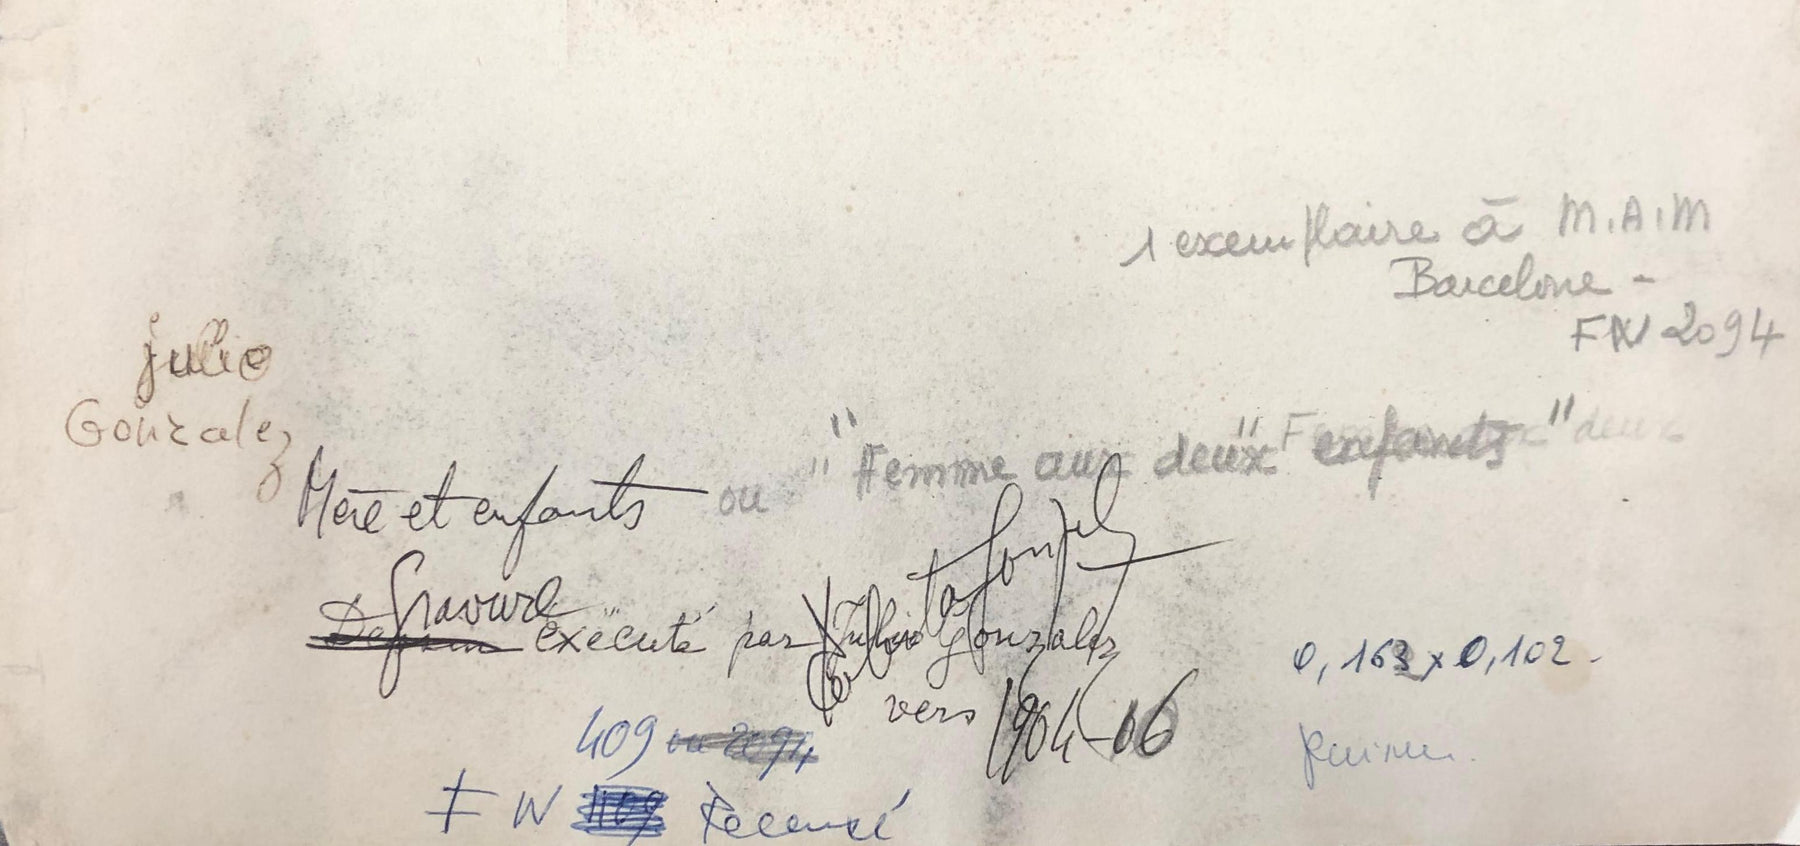 1 exemplaire à M.A.M
Barcelone -
FN 2094
Julio
Gonzalez
Mère et enfants ou "Femme aux deux enfants"
Gravure
Dessin exécuté par Julio Gonzalez
vers 1904-06
0,163 x 0,102.
409 ou 2094
N 409 Recensé